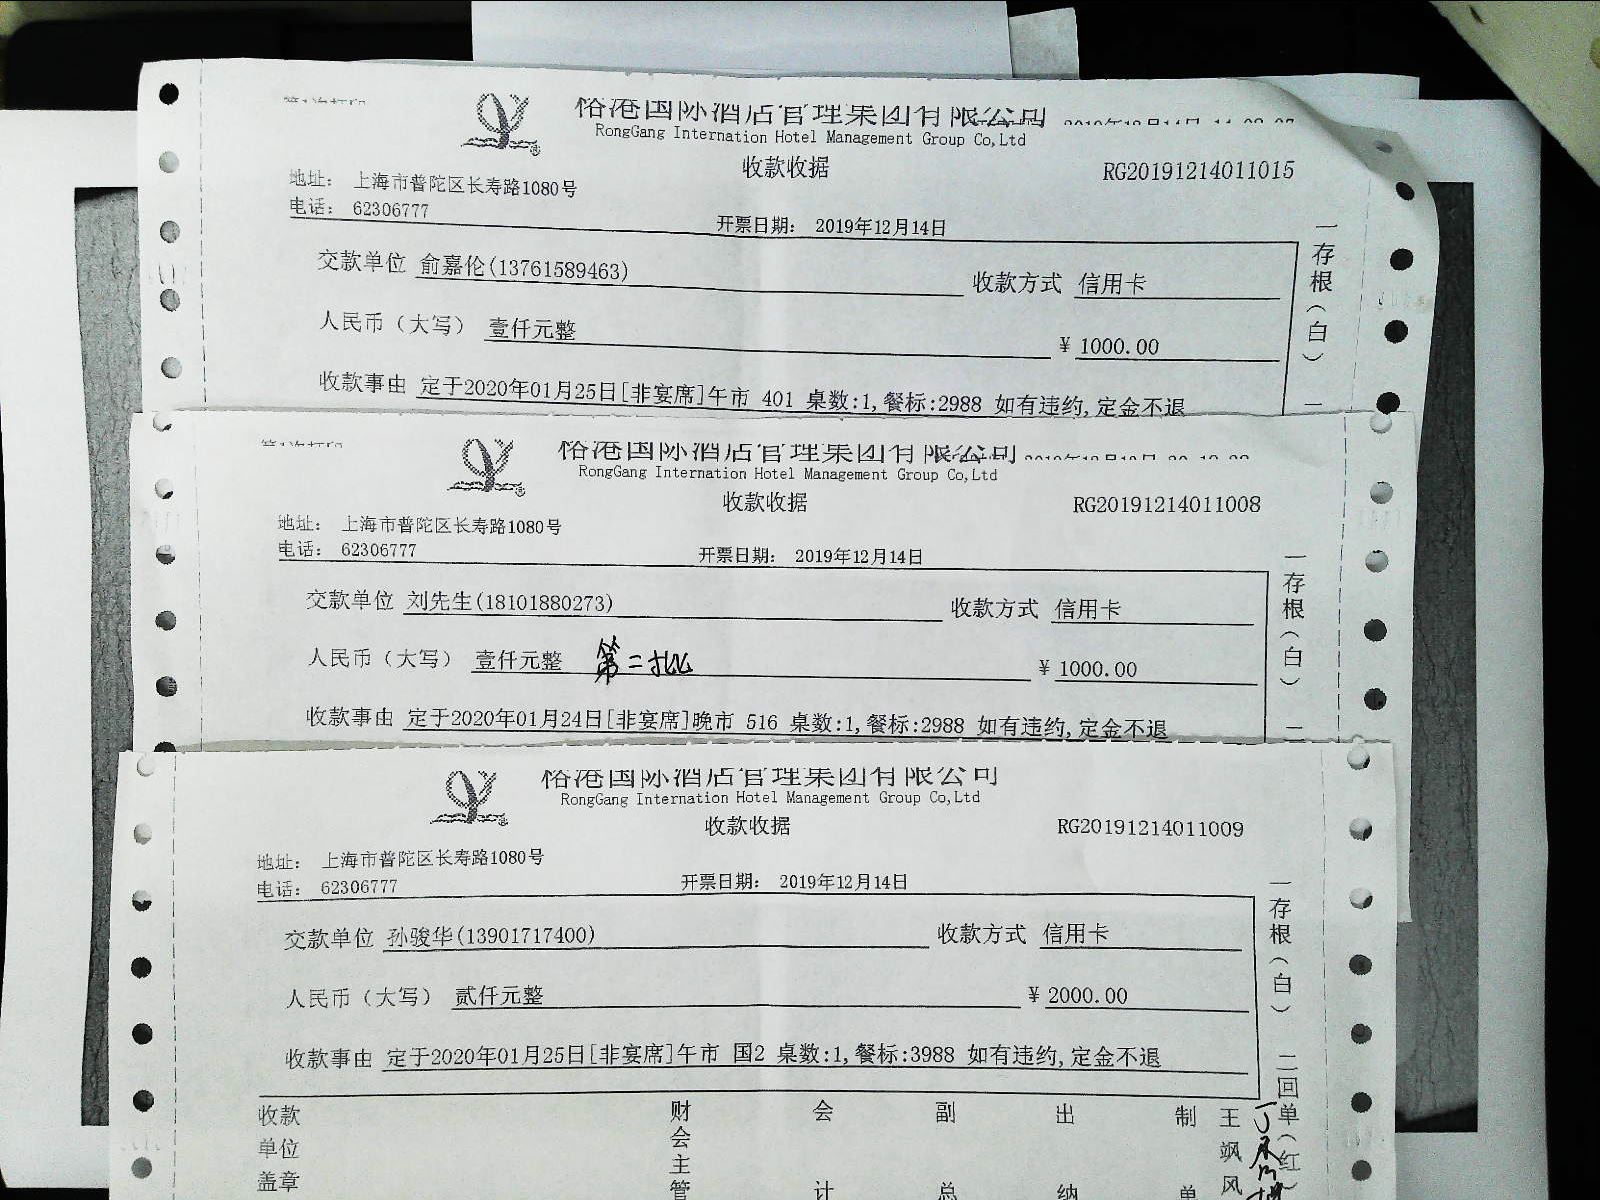 裕港国际酒店管理集团有限公司
RongGang Internation Hotel Management Group Co,Ltd
收款收据
RG20191214011015
地址： 上海市普陀区长寿路1080号
电话： 62306777
开票日期： 2019年12月14日
交款单位 俞嘉伦(13761589463)
收款方式 信用卡
人民币（大写） 壹仟元整
¥ 1000.00
收款事由 定于2020年01月25日[非宴席]午市 401 桌数:1,餐标:2988 如有违约,定金不退
一存根（白）
裕港国际酒店管理集团有限公司
RongGang Internation Hotel Management Group Co,Ltd
收款收据
RG20191214011008
地址： 上海市普陀区长寿路1080号
电话： 62306777
开票日期： 2019年12月14日
交款单位 刘先生(18101880273)
收款方式 信用卡
人民币（大写） 壹仟元整 第二批
¥ 1000.00
收款事由 定于2020年01月24日[非宴席]晚市 516 桌数:1,餐标:2988 如有违约,定金不退
一存根（白） 二
裕港国际酒店管理集团有限公司
RongGang Internation Hotel Management Group Co,Ltd
收款收据
RG20191214011009
地址： 上海市普陀区长寿路1080号
电话： 62306777
开票日期： 2019年12月14日
交款单位 孙骏华(13901717400)
收款方式 信用卡
人民币（大写） 贰仟元整
¥ 2000.00
收款事由 定于2020年01月25日[非宴席]午市 国2 桌数:1,餐标:3988 如有违约,定金不退
一存根（白） 二回单（红）
收款单位盖章
财会主管
会计
副总
出纳
制单
王飒风